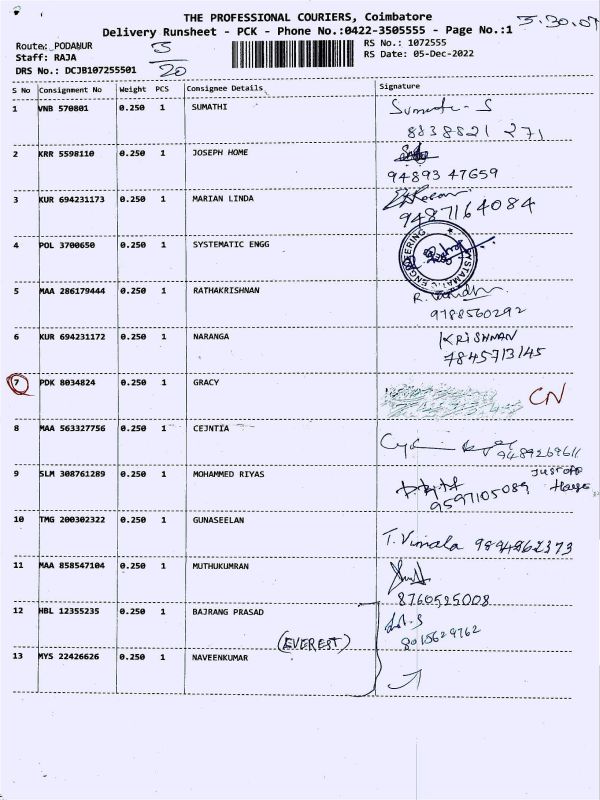 THE PROFESSIONAL COURIERS, Coimbatore
Delivery Runsheet - PCK - Phone No.:0422-3505555 - Page No.:1
Route: PODANUR 5 RS No.: 1072555
Staff: RAJA 20 RS Date: 05-Dec-2022
DRS No.: DCJB107255501
S No Consignment No Weight PCS Consignee Details Signature
1 VNB 570801 0.250 1 SUMATHI
8838821 271
2 KRR 5598110 0.250 1 JOSEPH HOME
94893 47659
3 KUR 694231173 0.250 1 MARIAN LINDA
9487164084
4 POL 3700650 0.250 1 SYSTEMATIC ENGG
SYSTAMATIC ENGINEERING
5 MAA 286179444 0.250 1 RATHAKRISHNAN
9788560292
6 KUR 694231172 0.250 1 NARANGA KRISHNAN
7845713145
7 PDK 8034824 0.250 1 GRACY CN
8 MAA 563327756 0.250 1 CEJNTIA
9489269611
9 SLM 308761289 0.250 1 MOHAMMED RIYAS
9597105089
10 TMG 200302322 0.250 1 GUNASEELAN
T. Vimala 9894262373
11 MAA 858547104 0.250 1 MUTHUKUMRAN
8760525008
12 HBL 12355235 0.250 1 BAJRANG PRASAD
(EVEREST) 8015629762
13 MYS 22426626 0.250 1 NAVEENKUMAR